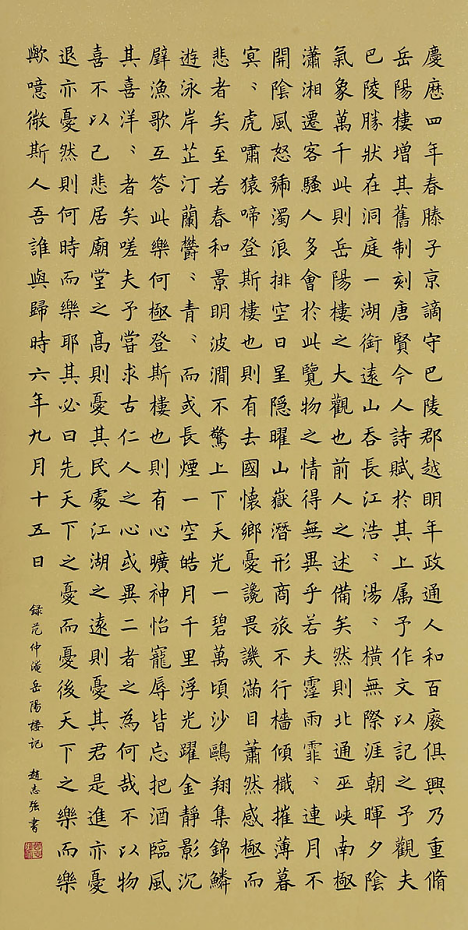 慶歷四年春滕子京謫守巴陵郡越明年政通人和百廢俱興乃重脩
岳陽樓增其舊制刻唐賢今人詩賦於其上属予作文以記之予觀夫
巴陵勝狀在洞庭一湖銜遠山吞長江浩〻湯〻橫無際涯朝暉夕陰
氣象萬千此則岳陽樓之大觀也前人之述備矣然則北通巫峽南極
瀟湘遷客騷人多會於此覽物之情得無異乎若夫霪雨霏〻連月不
開陰風怒號濁浪排空日星隱曜山嶽潛形商旅不行檣傾檝摧薄暮
冥〻虎嘯猿啼登斯樓也則有去國懷鄉憂讒畏譏滿目蕭然感極而
悲者矣至若春和景明波瀾不驚上下天光一碧萬頃沙鷗翔集錦鱗
遊泳岸芷汀蘭鬱〻青〻而或長煙一空皓月千里浮光躍金靜影沉
璧漁歌互答此樂何極登斯樓也則有心曠神怡寵辱皆忘把酒臨風
其喜洋〻者矣嗟夫予嘗求古仁人之心或異二者之為何哉不以物
喜不以己悲居廟堂之高則憂其民處江湖之遠則憂其君是進亦憂
退亦憂然則何時而樂耶其必曰先天下之憂而憂後天下之樂而樂
歟噫微斯人吾誰與歸時六年九月十五日
録范仲淹岳陽樓記 趙志強書